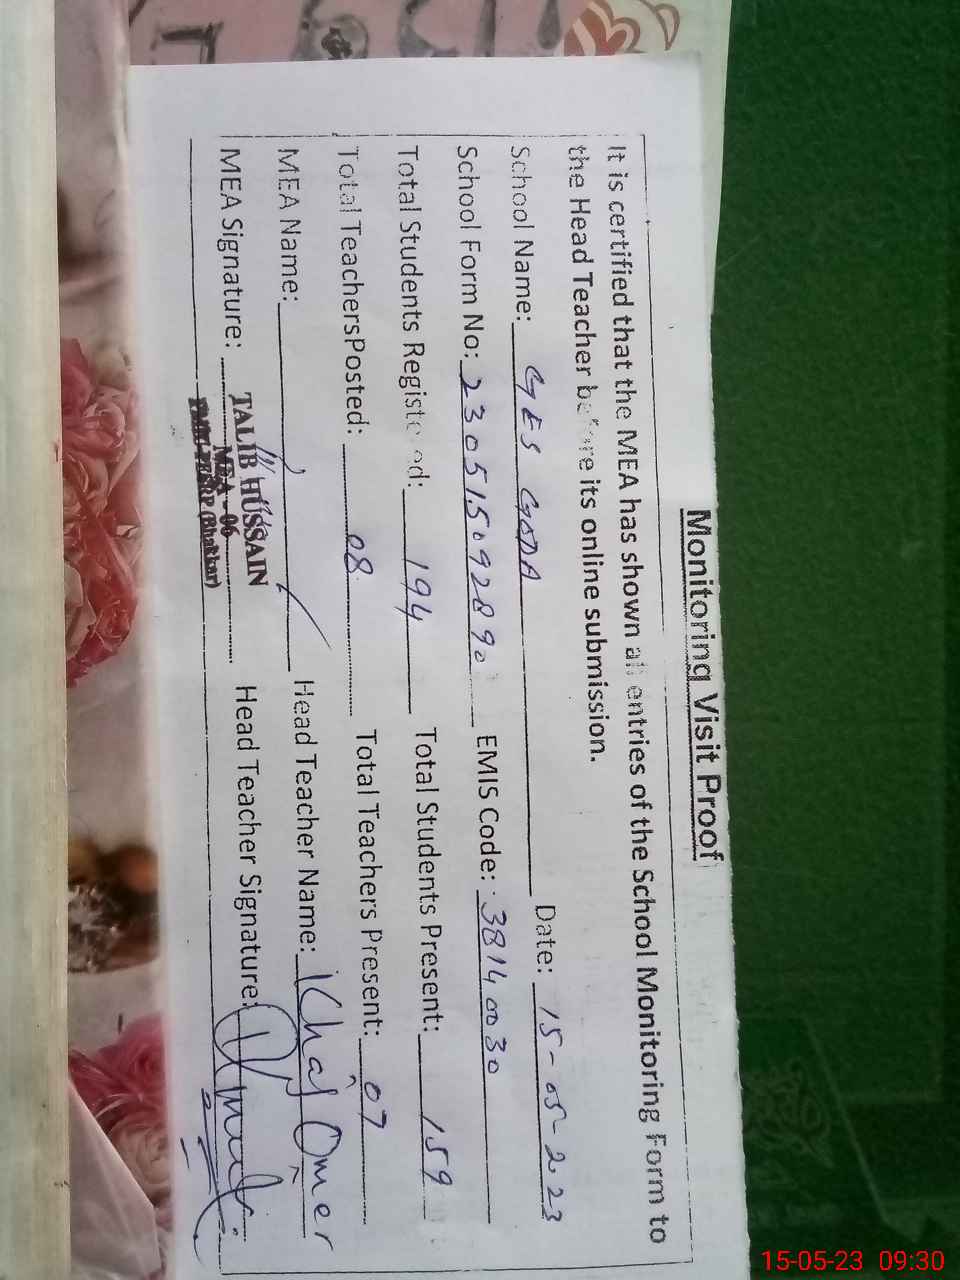 Monitoring Visit Proof
It is certified that the MEA has shown all entries of the School Monitoring Form to
the Head Teacher before its online submission.
School Name: GES GODA Date: 15-05-2023
School Form No: 23051509289 EMIS Code: 38140030
Total Students Registered: 194 Total Students Present: 159
Total TeachersPosted: 08 Total Teachers Present: 07
MEA Name: Head Teacher Name: Omer
MEA Signature: Head Teacher Signature:
TALIB HUSSAIN
MEA - 06
(Bhakkar)
15-05-23 09:30